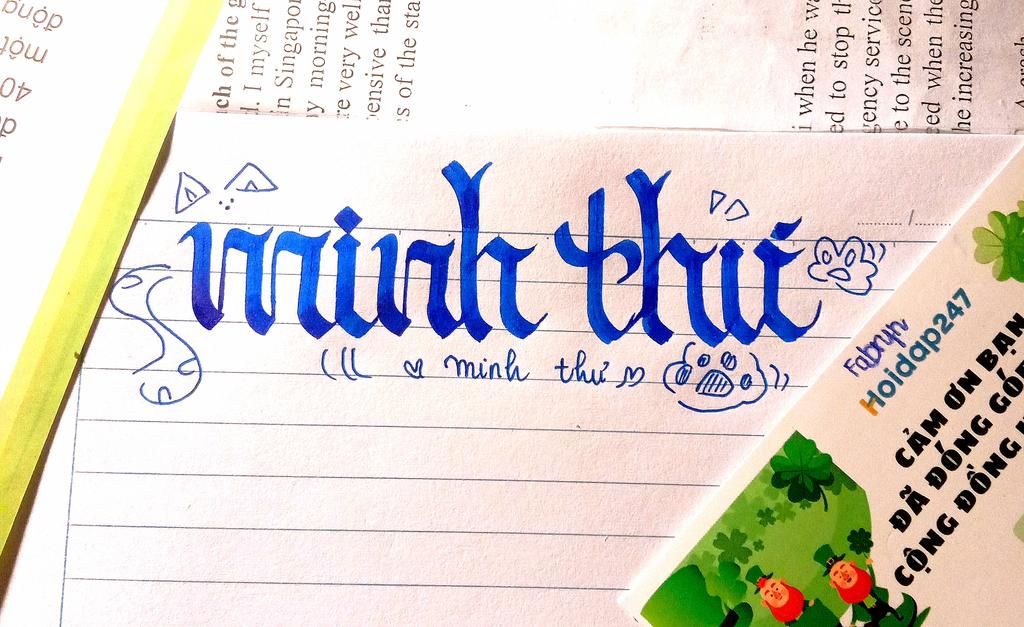 động
một
40
ch of the g
d. I myself
in Singapor
y morning
re very well
pensive tha
s of the sta
i when he wa
ed to stop th
gency service
e to the scene
ed when the
he increasing
minh thư
minh thư
Fabryn
Hoidap247
CẢM ƠN BẠN
ĐÃ ĐÓNG GÓP
CỘNG ĐỒNG